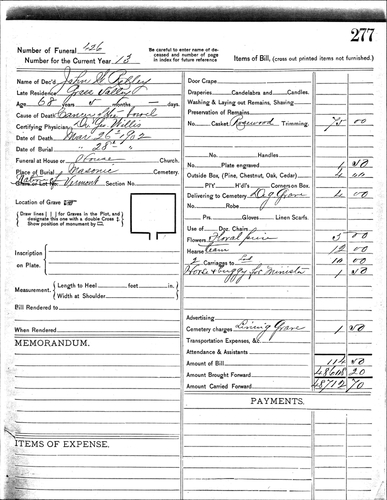 277
Number of Funeral 426
Number for the Current Year 13
Be carefully to enter name of deceased and number of page in index for future reference
Items of Bill, (cross out printed items not furnished.)
Name of Dec'd John W.
Late Residence Grass Valley
Age, 68 years 5 months — days.
Cause of Death Cancer of the bowel
Certifying Physician Dr Geo Willis
Date of Death Mar 26th 1902
Date of Burial " 28th "
Funeral at House or House Church.
Place of Burial Masonic Cemetery.
Vermont Section No.
Location of Grave
Draw lines | | for Graves in the Plot, and designate this one with a double Cross
Show position of monument by
Inscription on Plate.
Measurement. Length to Heel feet in.
Width at Shoulder
Bill Rendered
When Rendered
MEMORANDUM.
ITEMS OF EXPENSE.
Door Crape
Draperies Candelabra and Candles.
Washing & Laying out Remains, Shaving
Preservation of Remains
No. Casket Rosewood Trimming. 75 00
No. Handles
Plate engraved 1 50
Outside Box, (Pine, Chestnut, Oak, Cedar) 4 00
PIY. H'ell's Comerson Box.
Delivering to Cemetery Dig Grave 4 00
No. Robe
Prs. Gloves Linen Scarfs.
Use of Doz. Chairs
Flowers Floral piece 5 00
Hearse team 12 00
2 Carriages to 10 00
Horse & buggy for Minister 1 50
Advertising
Cemetery charges Lining Grave 1 50
Transportation Expenses, &c
Attendance & Assistants
Amount of Bill 114 50
Amount Brought Forward 48608 20
Amount Carried Forward 48712 70
PAYMENTS.